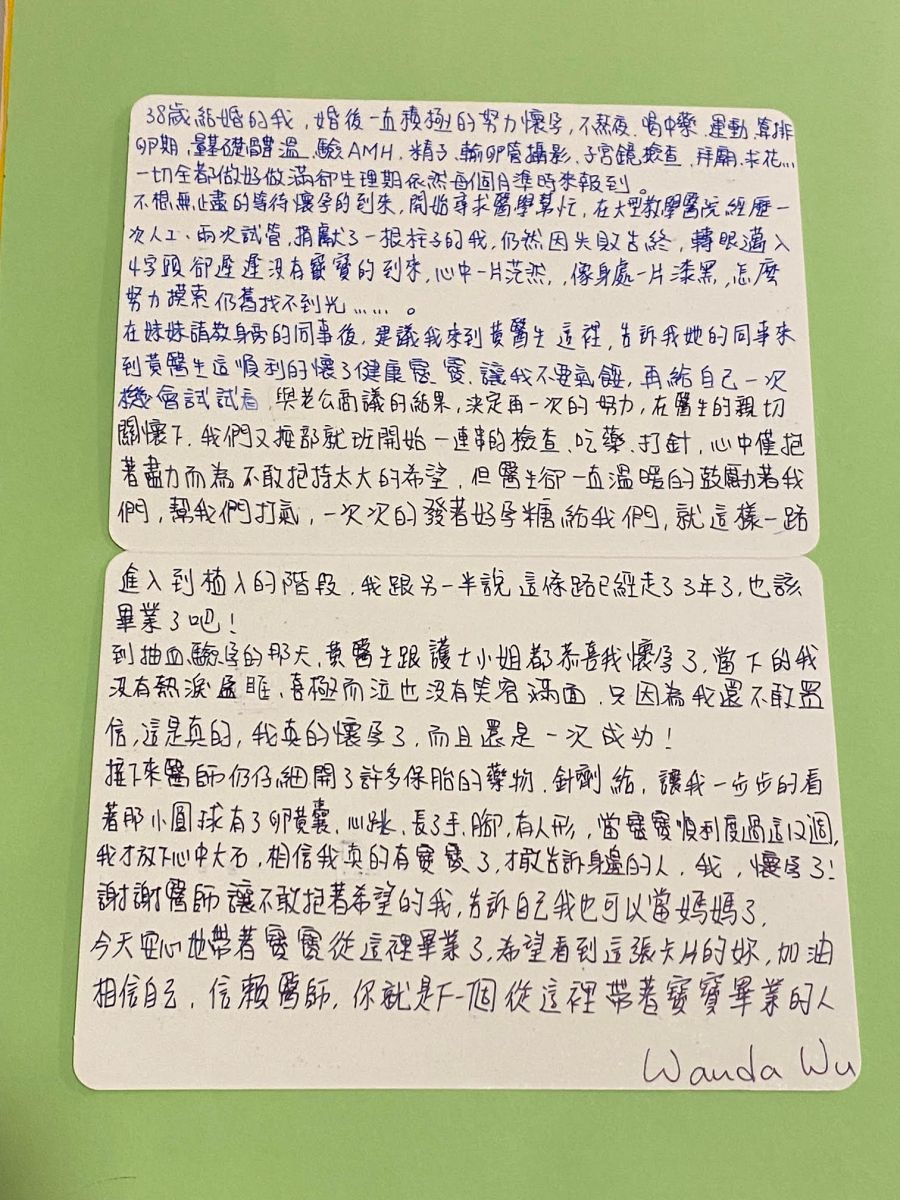 38歲結婚的我，婚後一直積極的努力懷孕，不熬夜、喝中藥、運動、算排
卵期、量基礎體溫、驗AMH、精子、輸卵管攝影、子宮鏡檢查、拜廟、求花...
一切全都做好做滿卻生理期依然每個月準時來報到。
不想無止盡的等待懷孕的到來，開始尋求醫學幫忙，在大型教學醫院經歷一
次人工、兩次試管，捐獻了一根柱子的我，仍然因失敗告終，轉眼邁入
4字頭卻遲遲沒有寶寶的到來，心中一片茫然，像身處一片漆黑，怎麼
努力摸索仍舊找不到光......。
在妹妹請教身旁的同事後，建議我來到黃醫生這裡，告訴我她的同事來
到黃醫生這順利的懷了健康寶寶，讓我不要氣餒，再給自己一次
機會試試看，與老公商議的結果，決定再一次的努力，在醫生的親切
關懷下，我們又按部就班開始一連串的檢查、吃藥、打針，心中僅抱
著盡力而為不敢抱持太大的希望，但醫生卻一直溫暖的鼓勵著我
們，幫我們打氣，一次次的發著好孕糖給我們，就這樣一路
進入到植入的階段，我跟另一半說這條路已經走了3年了，也該
畢業了吧！
到抽血驗孕的那天，黃醫生跟護士小姐都恭喜我懷孕了，當下的我
沒有熱淚盈眶、喜極而泣也沒有笑容滿面，只因為我還不敢置
信，這是真的，我真的懷孕了，而且還是一次成功！
接下來醫師仍仔細開了許多保胎的藥物、針劑給，讓我一步步的看
著那小圓球有了卵黃囊、心跳、長了手、腳、有人形，當寶寶順利度過這12週，
我才放下心中大石，相信我真的有寶寶了，才敢告訴身邊的人，我，懷孕了！
謝謝醫師讓不敢抱著希望的我，告訴自己我也可以當媽媽了，
今天安心地帶著寶寶從這裡畢業了，希望看到這張卡片的妳，加油
相信自己，信賴醫師，你就是下一個從這裡帶著寶寶畢業的人
Wanda Wu